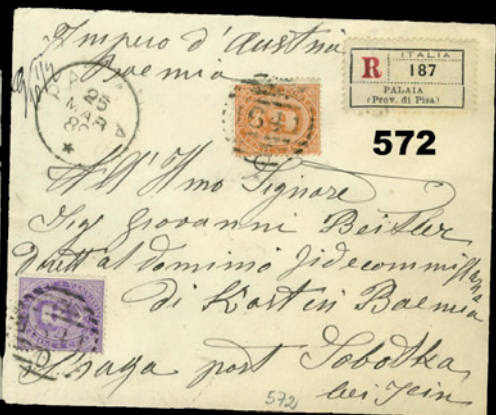 Impero d'Austria
Boemia
ITALIA
R 187
PALAIA
(Prov. di Pisa)
572
PALAIA
25
MAR
All' Illmo Signore
Sig Giovanni Beitler
Dirett al dominio fidecommissario
di Kost in Boemia
Praga post Sobotka
bei Jcin
572